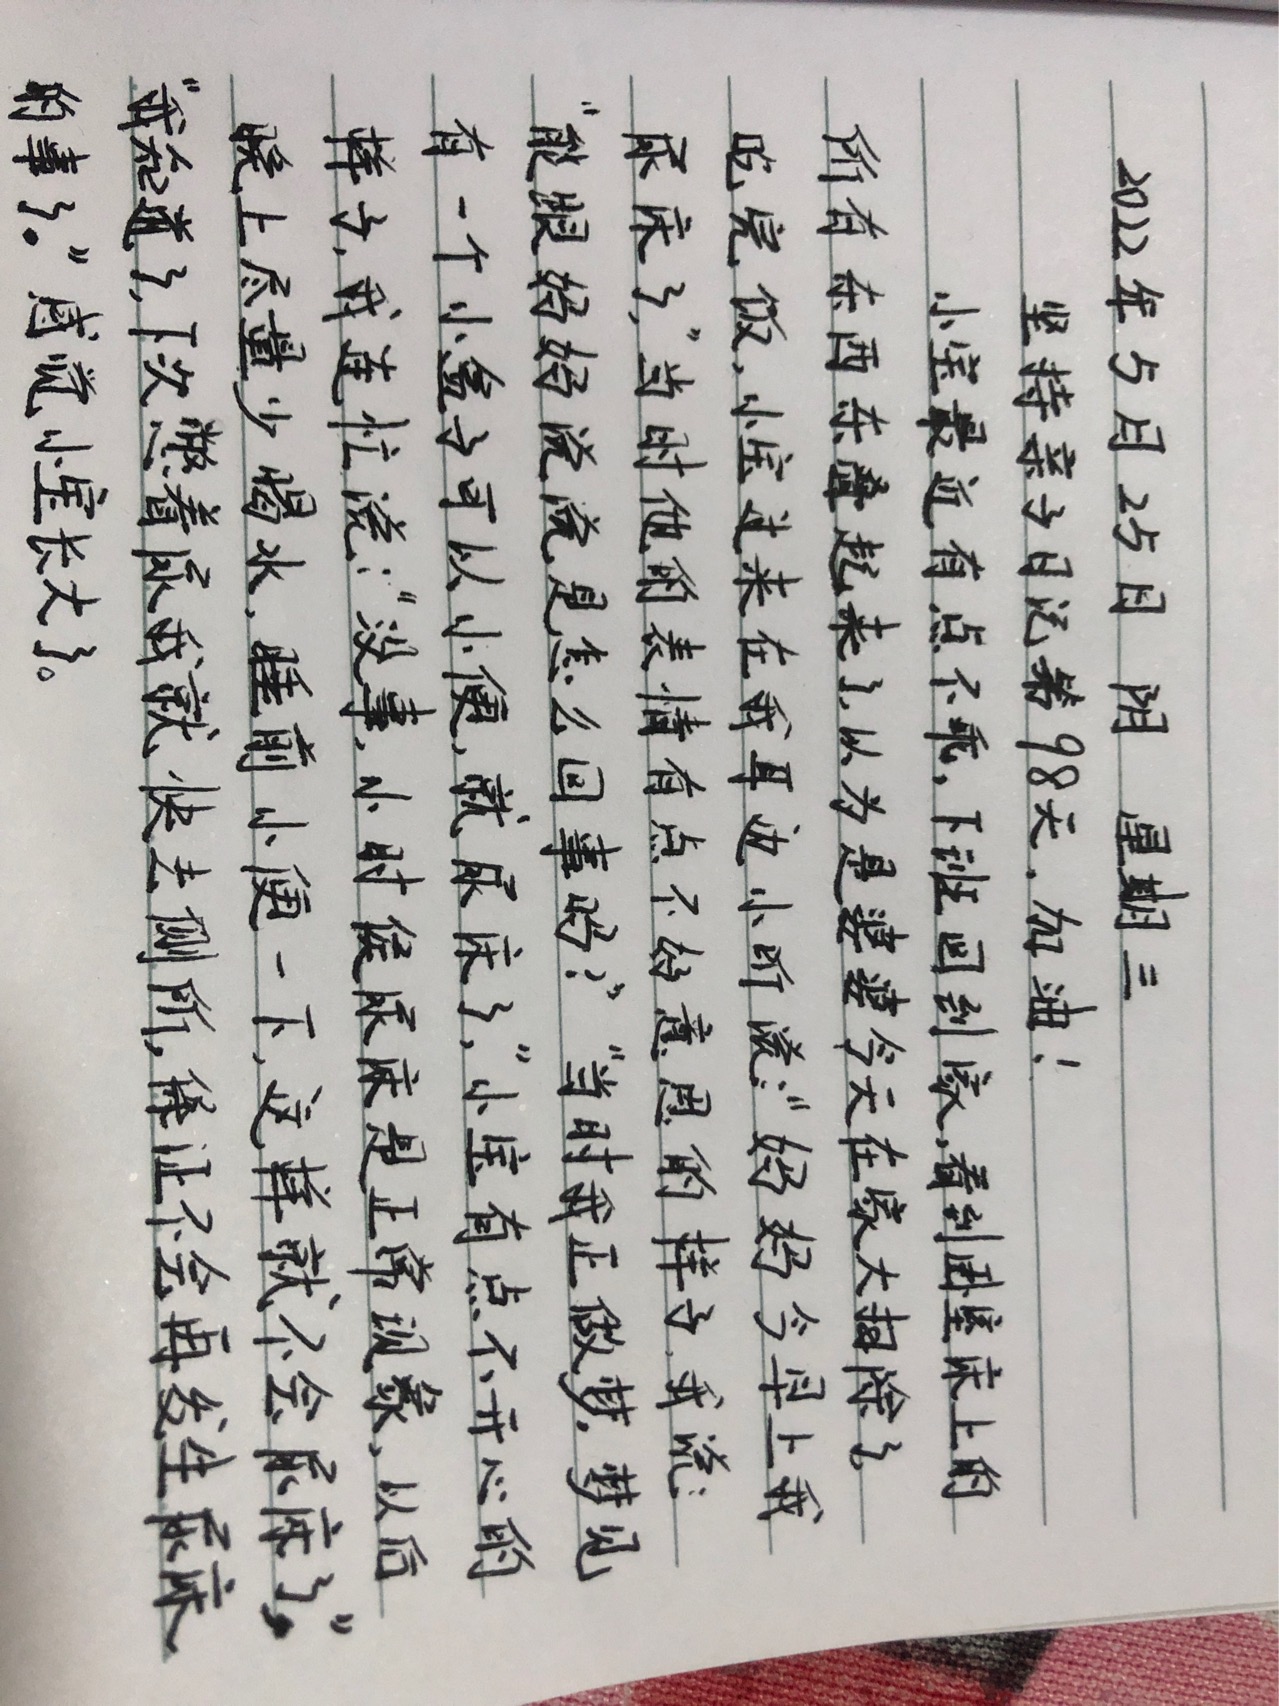 2022年5月25日 阴 星期三
坚持亲子日记第98天,加油!
小宝最近有点不乖,下班回到家,看到卧室床上的
所有东西东叠起来了,以为是婆婆今天在家大扫除了,
吃完饭,小宝走来在我耳边小听说:“妈妈今早上我
尿床了,”当时他的表情有点不好意思的样子,我说:
“能跟妈妈说说是怎么回事吗?”“当时我正做梦,梦见
有一个小盒子可以小便,就尿床了,”小宝有点不开心的
样子,我连忙说:“没事,小时候尿床是正常现象,以后
晚上尽量少喝水,睡前小便一下,这样就不会尿床了。”
“我知道了,下次憋着尿我就快去侧所,保证不会再发生尿床
的事了。”感觉小宝长大了。